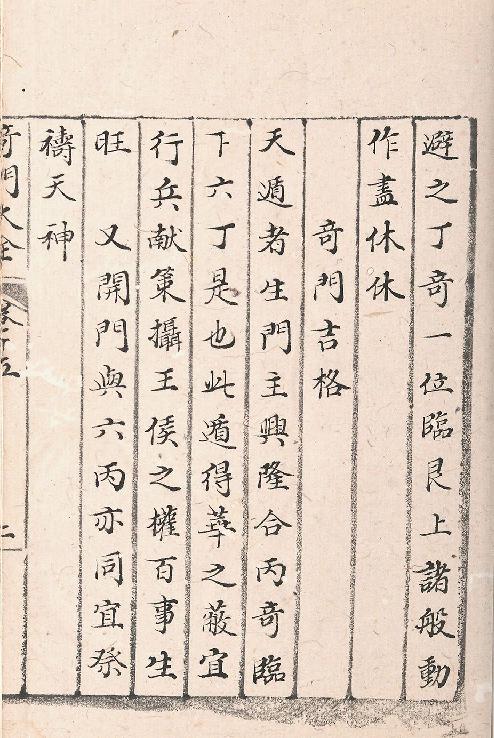 避之丁奇一位臨艮上諸般動
作盡休休
奇門吉格
天遁者生門主興隆合丙奇臨
下六丁是也此遁得華之蔽宜
行兵献策攝王侯之權百事生
旺 又開門與六丙亦同宜祭
禱天神
奇門大全 卷十五 二